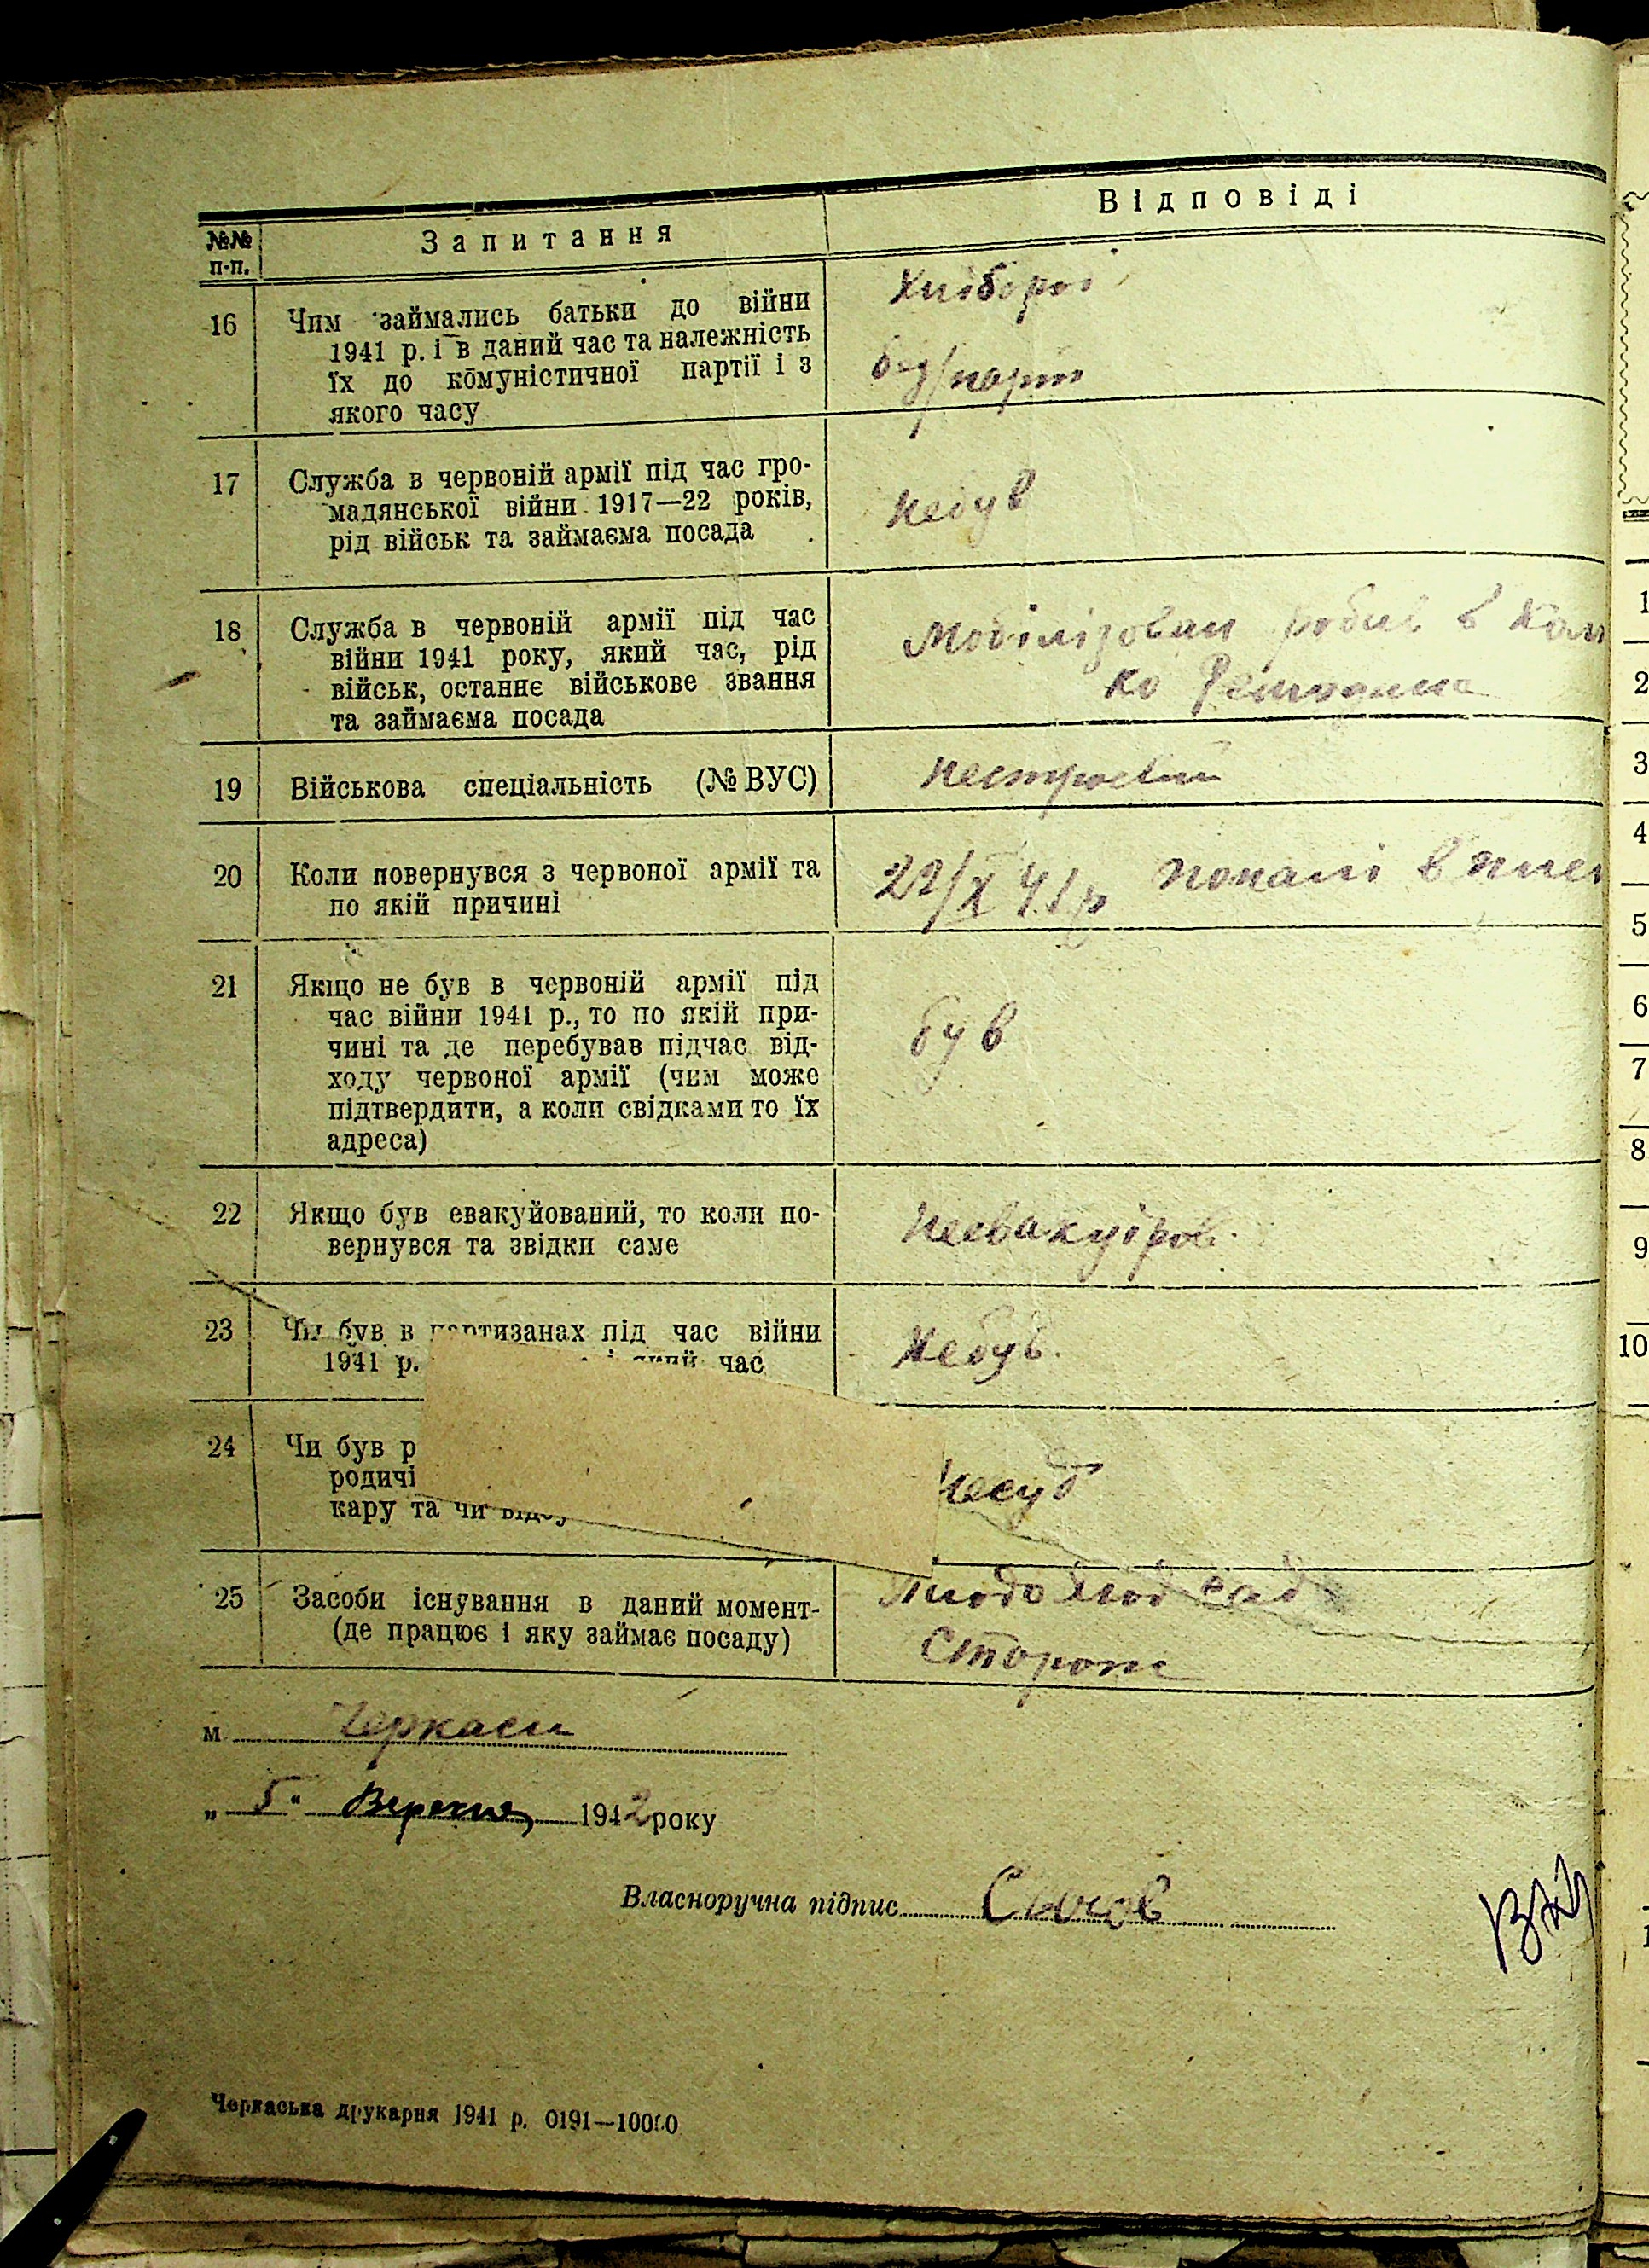 №№ п-п.
Запитання
Відповіді
16
Чим займались батьки до війни
1941 р. і в даний час та належність
їх до комуністичної партії і з
якого часу
Хлібороб
без/парт
17
Служба в червоній армії під час гро-
мадянської війни 1917—22 років,
рід військ та займаєма посада
небув
18
Служба в червоній армії під час
війни 1941 року, який час, рід
військ, останнє військове звання
та займаєма посада
Мобілізован робив в
ко
19
Військова спеціальність (№ ВУС)
нестроевий
20
Коли повернувся з червоної армії та
по якій причині
22/X 41 р попав в плен
21
Якщо не був в червоній армії під
час війни 1941 р., то по якій при-
чині та де перебував підчас від-
ходу червоної армії (чим може
підтвердити, а коли свідками то їх
адреса)
був
22
Якщо був евакуйований, то коли по-
вернувся та звідки саме
неевакуіров.
23
Чи був в партизанах під час війни
1941 р. час
Небув.
24
Чи був р
родичі
кару та чи відбу
несуд
25
Засоби існування в даний момент-
(де працює і яку займає посаду)
сад
Сторож
м. Черкаси
„ 5 “ Вересня 1942 року
Власноручна підпис
Черкаська друкарня 1941 р. 0191—10000
1
2
3
4
5
6
7
8
9
10